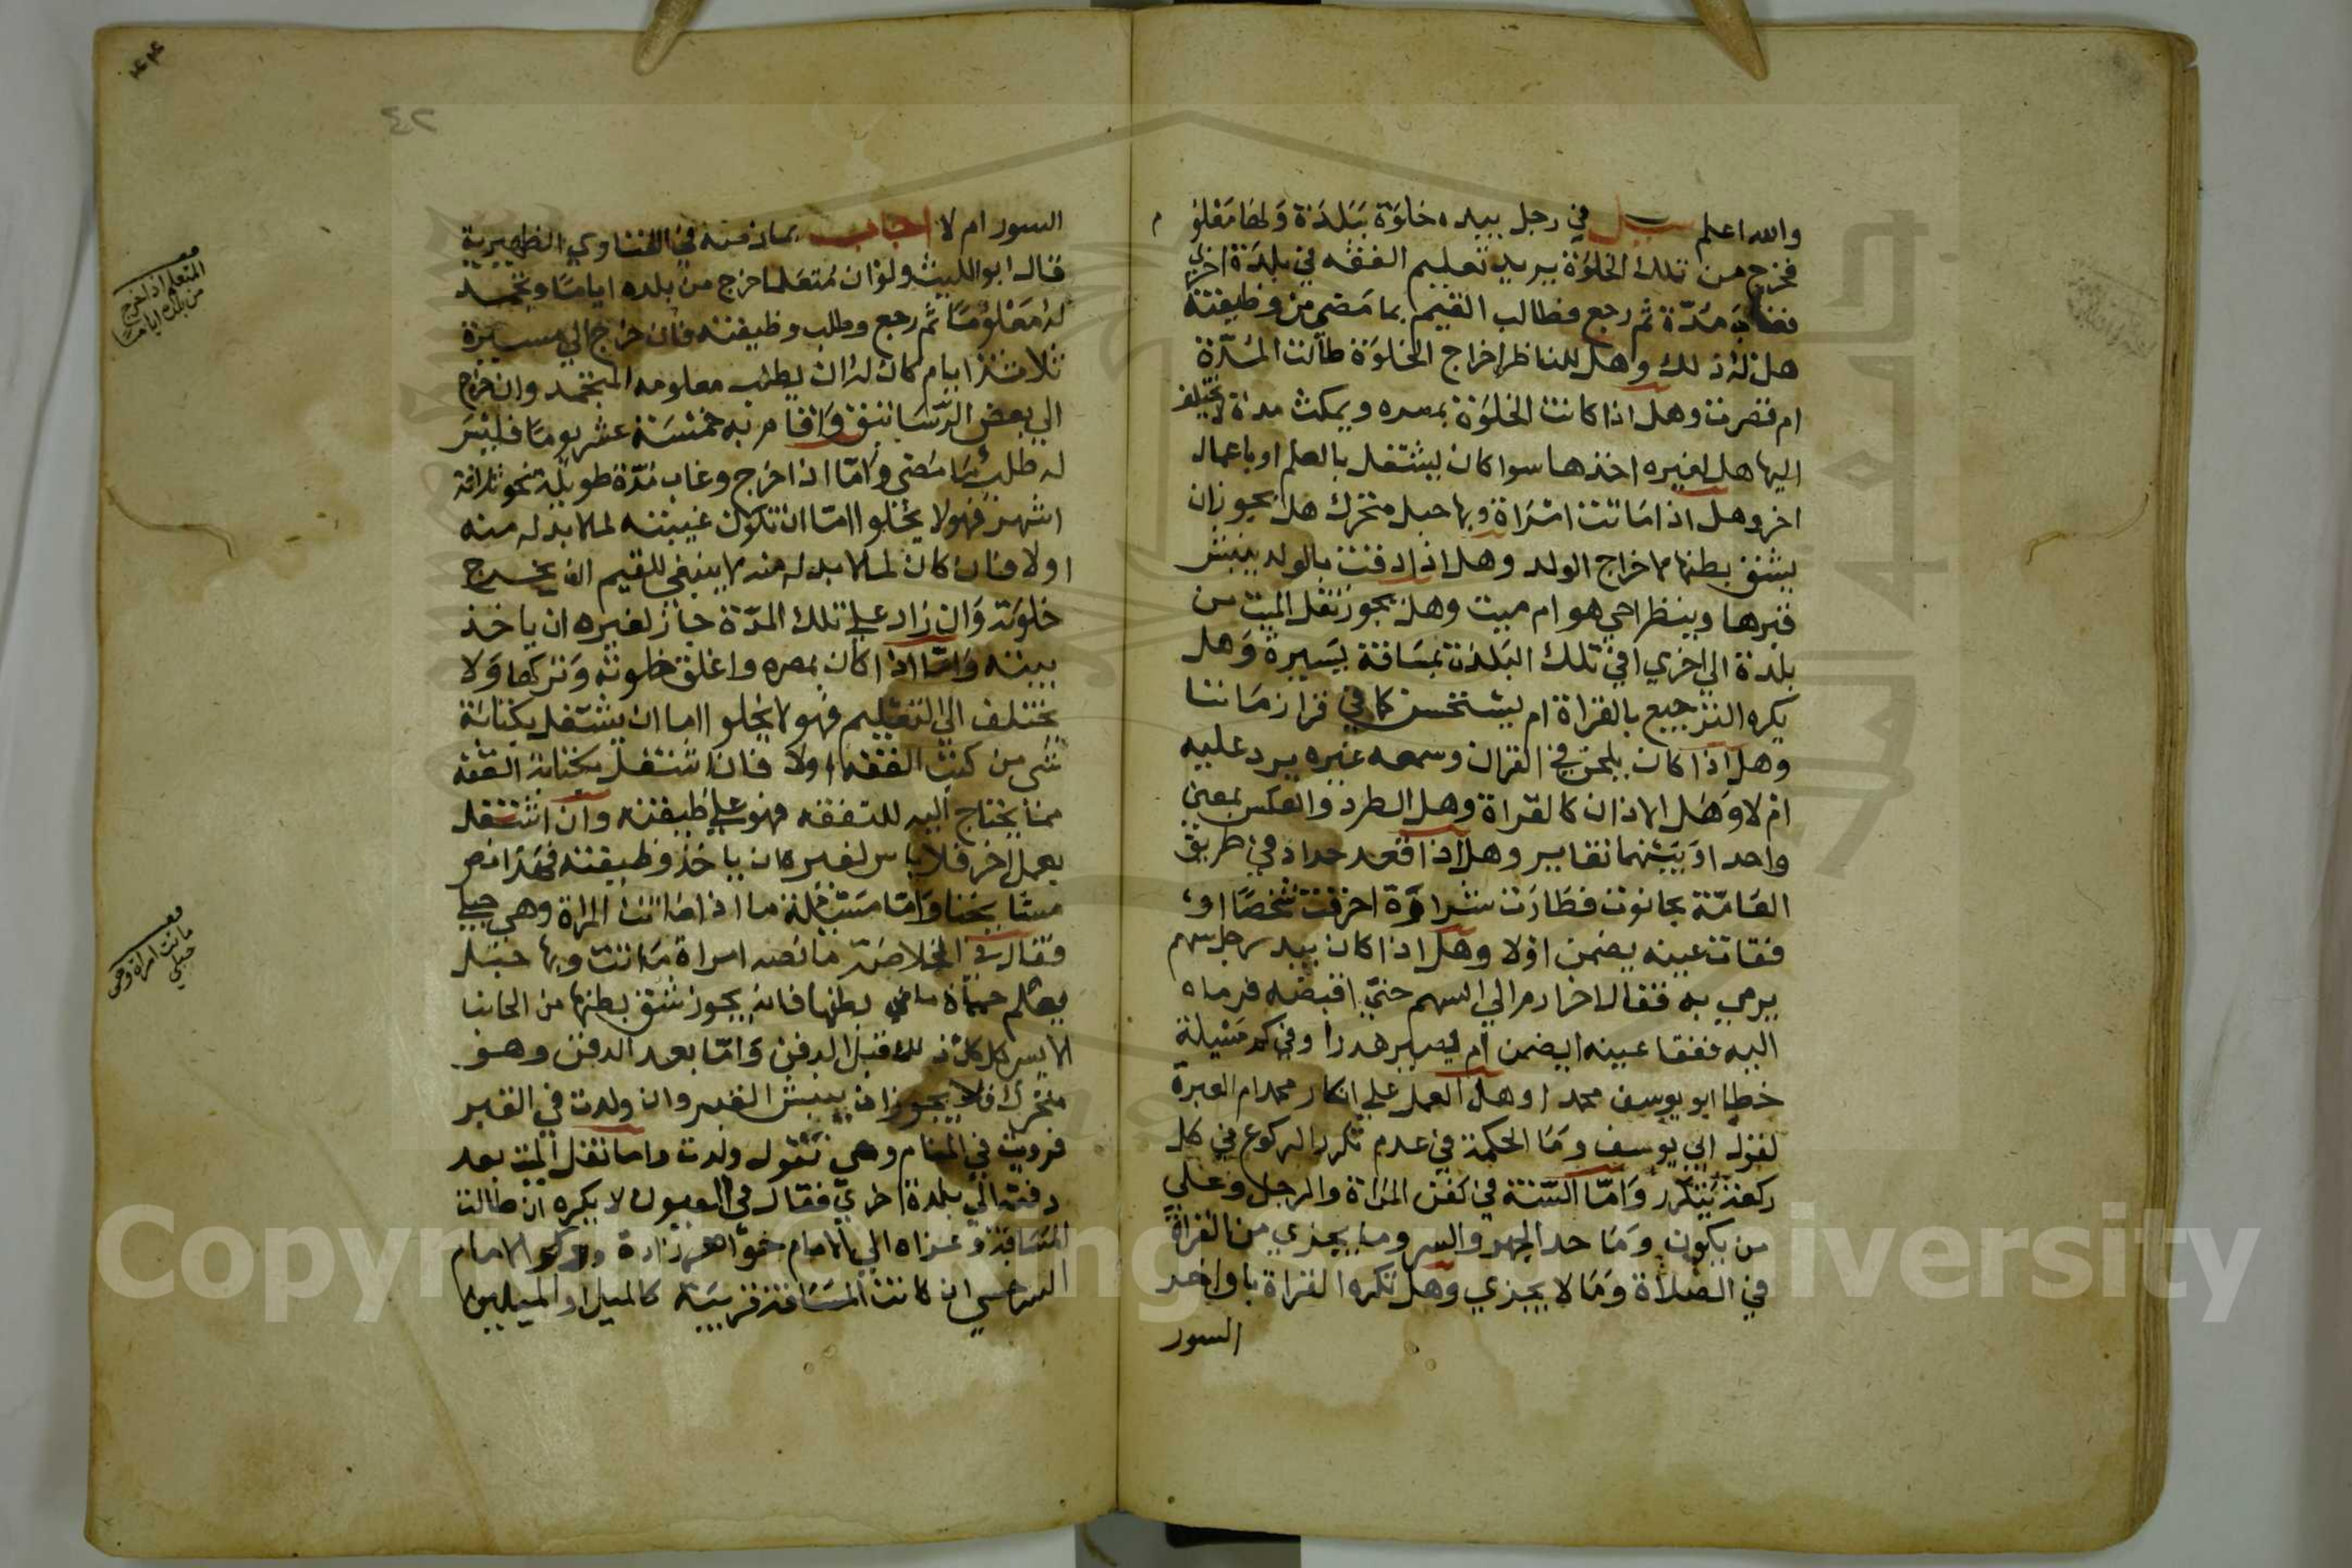 والله اعلم سيل في رجل بيده خلوة ببلدة ولها معلوم
فخرج من تلك الخلوة يريد تعليم الفقه في بلدة اخري
فغاب مدة ثم رجع فطالب القيم بما مضي من وظيفته
هل له ذلك وهل للناظر اخراج الخلوة طالت المدة
ام قصرت وهل اذا كانت الخلوة بمصره ويمكث مدة لا يختلف
اليها هل لغيره اخذها سوا كان يشتغل بالعلم او باعمال
اخر وهل اذا ماتت امراة وبها حبل متحرك هل يجوز ان
يشق بطنها لاخراج الولد وهل اذا دفنت بالولد ينبش
قبرها وينظر احي هو ام ميت وهل يجوز نقل الميت من
بلدة الي اخري او في تلك البلدة بمسافة يسيرة وهل
يكره الترجيع بالقراة ام يستحسن كما في قرا زماننا
وهل اذا كان يلحن في القران وسمعه غيره يرد عليه
ام لا وهل الاذان كالقراة وهل الطرد والعكس بمعني
واحد او بينهما تغاير وهل اذا قعد حداد في طريق
العامة بحانوت فطارت شرارة احرقت شخصا او
فقات عينه يضمن اولا وهل اذا كان بيد رجل سهم
يرمي به فقال اخر ارم الي السهم حتي اقبضه فرماه
اليه ففقا عينه ايضمن ام يصير هدرا وفي كم مسيلة
خطا ابو يوسف محمدا وهل العمل علي انكار محمد ام العبرة
لقول ابي يوسف وما الحكمة في عدم تكرر الركوع في كل
ركعة يتكرر واما السنة في كفن المراة والرجل وعلي
من يكون وما حد الجهر والسر وما يجزي من القراة
في الصلاة وما لا يجزي وهل تكره القراة باواخر
السور
٤٢
السور ام لا اجاب بما رقمته في الفتاوي الظهيرية
قال ابو الليث ولو ان متعلما خرج من بلده اياما ويتجمد
له معلوما ثم رجع وطلب وظيفته فان خرج الي مسيرة
ثلاثة ايام كان له ان يطلب معلومه المتجمد وان خرج
الي بعض الرساتيق واقام به خمسة عشر يوما فليس
له طلب ما مضي واما اذا خرج وغاب مدة طويلة نحو ثلاثة
اشهر فهو لا يخلوا اما ان تكون غيبته لما لا بد له منه
اولا فان كان لما لا بد له منه لا ينبغي للقيم ان يخرج
خلوته وان زاد علي تلك المدة جاز لغيره ان ياخذ
بيته واما اذا كان بمصره واغلق خلوته وتركها ولا
يختلف الي التعليم فهو لا يخلو اما ان يشتغل بكتابة
شي من كتب الفقه اولا فان اشتغل بكتابة الفقه
مما يحتاج اليه للتفقه فهو علي وظيفته وان اشتغل
بعمل اخر فلا باس لغيره ان ياخذ وظيفته فهذا نص
مشايخنا واما مسئلة ما اذا ماتت المراة وهي حبلي
فقال في الخلاصة ما نصه امراة ماتت وبها حبل
يعلم حياة ما في بطنها فانه يجوز شق بطنها من الجانب
الايسر كل ذلك قبل الدفن واما بعد الدفن وهو
متحرك فلا يجوز ان ينبش القبر وان ولدت في القبر
فرويت في المنام وهي تقول ولدت واما نقل الميت بعد
دفنه الي بلدة اخري فقال في العيون لا يكره ان طالت
المسافة وعزاه الي الامام خواهر زاده وذكر الامام
السرخسي ان كانت المسافة قريبة كالميل او الميلين
المتعلم اذا خرج
من بلده اياما
ماتت امراة وهي
حبلي
Copyright © King Saud University